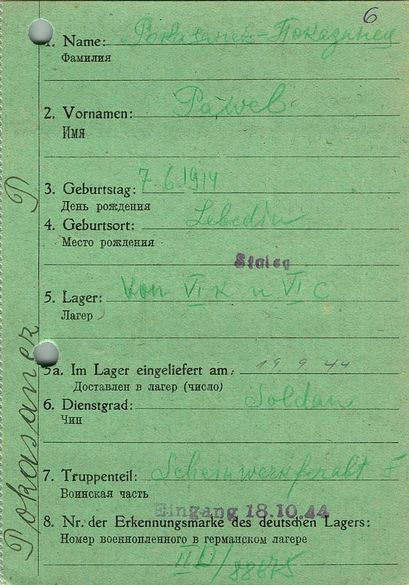 6
1. Name: Pokasanez-Показанец
Фамилия
2. Vornamen: Pawel
Имя
3. Geburtstag: 7.6.1914
День рождения
4. Geburtsort: Lebedin
Место рождения
Stalag
5. Lager: Von VI K u VI C
Лагер
5a. Im Lager eingeliefert am: 19.9.44
Доставлен в лагер (число)
6. Dienstgrad: Soldau
Чин
7. Truppenteil: Scheinwerferabt
Воинская часть
Eingang 18.10.44
8. Nr. der Erkennungsmarke des deutschen Lagers:
Номер военнопленного в германском лагере
II D/88675
Pokasanez P